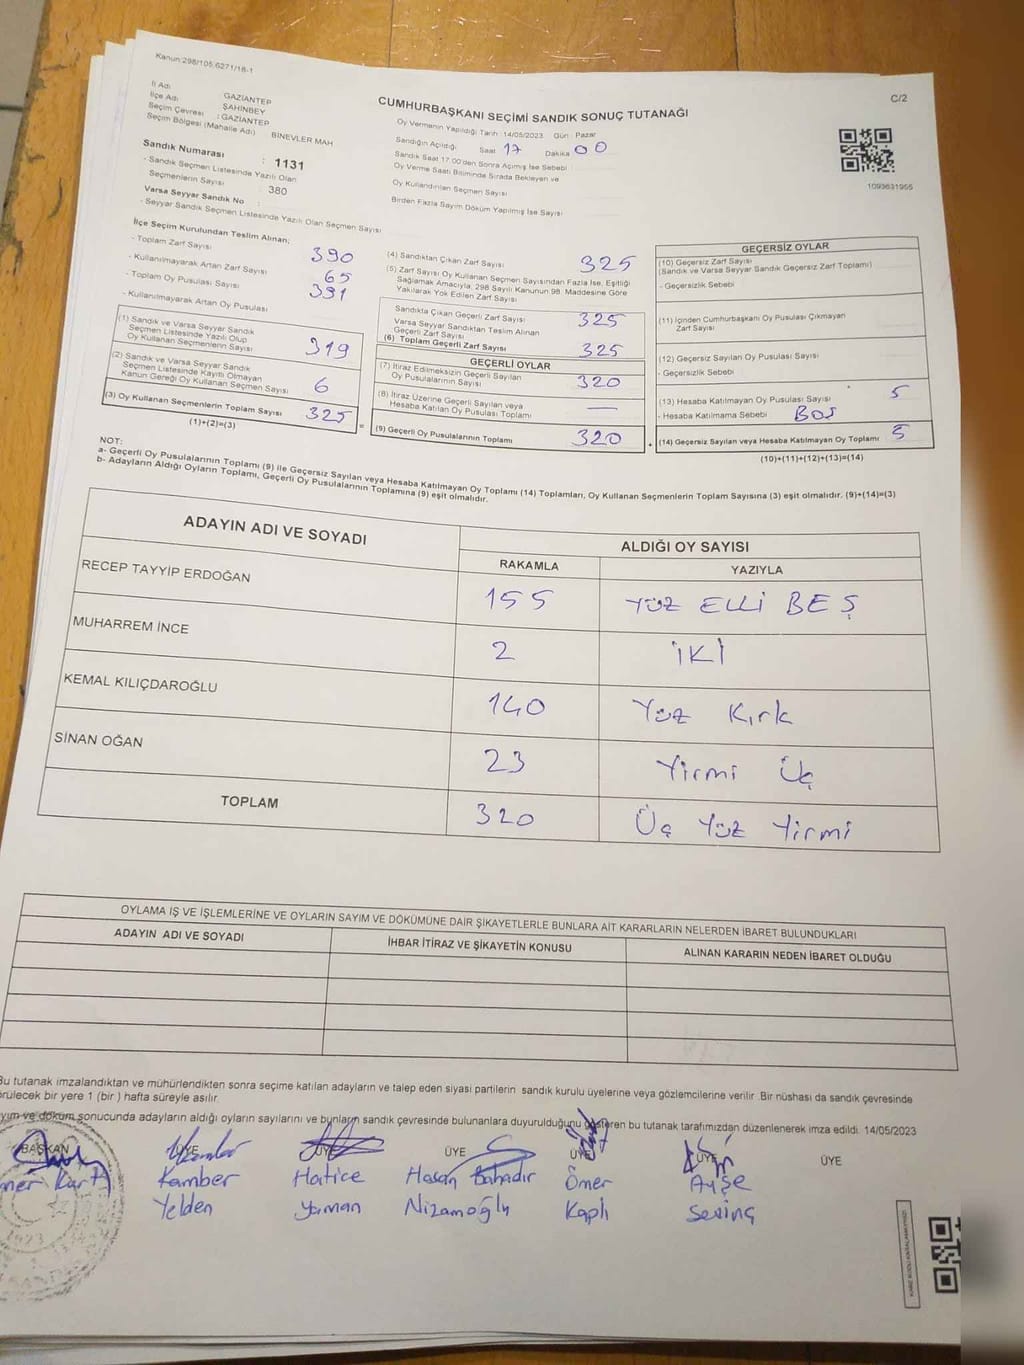 Kanun:298/105,6271/18-1
C/2
İl Adı GAZİANTEP
İlçe Adı ŞAHİNBEY
Seçim Çevresi : GAZİANTEP
Seçim Bölgesi (Mahalle Adı) BİNEVLER MAH
Sandık Numarası : 1131
- Sandık Seçmen Listesinde Yazılı Olan
Seçmenlerin Sayısı : 380
Varsa Seyyar Sandık No :
- Seyyar Sandık Seçmen Listesinde Yazılı Olan Seçmen Sayısı
CUMHURBAŞKANI SEÇİMİ SANDIK SONUÇ TUTANAĞI
Oy Vermenin Yapıldığı Tarih : 14/05/2023 Gün : Pazar
Sandığın Açıldığı Saat 17 Dakika 00
Sandık Saat 17:00'den Sonra Açılmış İse Sebebi
Oy Verme Saati Bitiminde Sırada Bekleyen ve
Oy Kullandırılan Seçmen Sayısı
Birden Fazla Sayım Döküm Yapılmış İse Sayısı
1093631955
İlçe Seçim Kurulundan Teslim Alınan;
- Toplam Zarf Sayısı 390
- Kullanılmayarak Artan Zarf Sayısı 65
- Toplam Oy Pusulası Sayısı 391
- Kullanılmayarak Artan Oy Pusulası
(1) Sandık ve Varsa Seyyar Sandık
Seçmen Listesinde Yazılı Olup
Oy Kullanan Seçmenlerin Sayısı 319
(2) Sandık ve Varsa Seyyar Sandık
Seçmen Listesinde Kayıtlı Olmayan
Kanun Gereği Oy Kullanan Seçmen Sayısı 6
(3) Oy Kullanan Seçmenlerin Toplam Sayısı 325
(1)+(2)=(3)
=
(4) Sandıktan Çıkan Zarf Sayısı 325
(5) Zarf Sayısı Oy Kullanan Seçmen Sayısından Fazla İse, Eşitliği
Sağlamak Amacıyla, 298 Sayılı Kanunun 98. Maddesine Göre
Yakılarak Yok Edilen Zarf Sayısı
Sandıkta Çıkan Geçerli Zarf Sayısı 325
Varsa Seyyar Sandıktan Teslim Alınan
Geçerli Zarf Sayısı
(6) Toplam Geçerli Zarf Sayısı 325
GEÇERLİ OYLAR
(7) İtiraz Edilmeksizin Geçerli Sayılan
Oy Pusulalarının Sayısı 320
(8) İtiraz Üzerine Geçerli Sayılan veya
Hesaba Katılan Oy Pusulası Toplamı —
(9) Geçerli Oy Pusulalarının Toplamı 320
+
GEÇERSİZ OYLAR
(10) Geçersiz Zarf Sayısı
(Sandık ve Varsa Seyyar Sandık Geçersiz Zarf Toplamı)
- Geçersizlik Sebebi
(11) İçinden Cumhurbaşkanı Oy Pusulası Çıkmayan
Zarf Sayısı
(12) Geçersiz Sayılan Oy Pusulası Sayısı
- Geçersizlik Sebebi
(13) Hesaba Katılmayan Oy Pusulası Sayısı 5
- Hesaba Katılmama Sebebi BOŞ
(14) Geçersiz Sayılan veya Hesaba Katılmayan Oy Toplamı 5
(10)+(11)+(12)+(13)=(14)
NOT:
a- Geçerli Oy Pusulalarının Toplamı (9) ile Geçersiz Sayılan veya Hesaba Katılmayan Oy Toplamı (14) Toplamları, Oy Kullanan Seçmenlerin Toplam Sayısına (3) eşit olmalıdır. (9)+(14)=(3)
b- Adayların Aldığı Oyların Toplamı, Geçerli Oy Pusulalarının Toplamına (9) eşit olmalıdır.
ADAYIN ADI VE SOYADI
ALDIĞI OY SAYISI
RAKAMLA YAZIYLA
RECEP TAYYİP ERDOĞAN 155 YÜZ ELLİ BEŞ
MUHARREM İNCE 2 İKİ
KEMAL KILIÇDAROĞLU 140 Yüz Kırk
SİNAN OĞAN 23 Yirmi Üç
TOPLAM 320 Üç Yüz Yirmi
OYLAMA İŞ VE İŞLEMLERİNE VE OYLARIN SAYIM VE DÖKÜMÜNE DAİR ŞİKAYETLERLE BUNLARA AİT KARARLARIN NELERDEN İBARET BULUNDUKLARI
ADAYIN ADI VE SOYADI İHBAR İTİRAZ VE ŞİKAYETİN KONUSU ALINAN KARARIN NEDEN İBARET OLDUĞU
Bu tutanak imzalandıktan ve mühürlendikten sonra seçime katılan adayların ve talep eden siyasi partilerin sandık kurulu üyelerine veya gözlemcilerine verilir. Bir nüshası da sandık çevresinde
görülecek bir yere 1 (bir ) hafta süreyle asılır.
yım ve döküm sonucunda adayların aldığı oyların sayılarını ve bunların sandık çevresinde bulunanlara duyurulduğunu gösteren bu tutanak tarafımızdan düzenlenerek imza edildi. 14/05/2023
BAŞKAN ÜYE ÜYE ÜYE ÜYE ÜYE ÜYE
Kamber Hatice Hasan Bahadır Ömer Ayşe
Yelden Yaman Nizamoğlu Kaplı Sevinç
1923